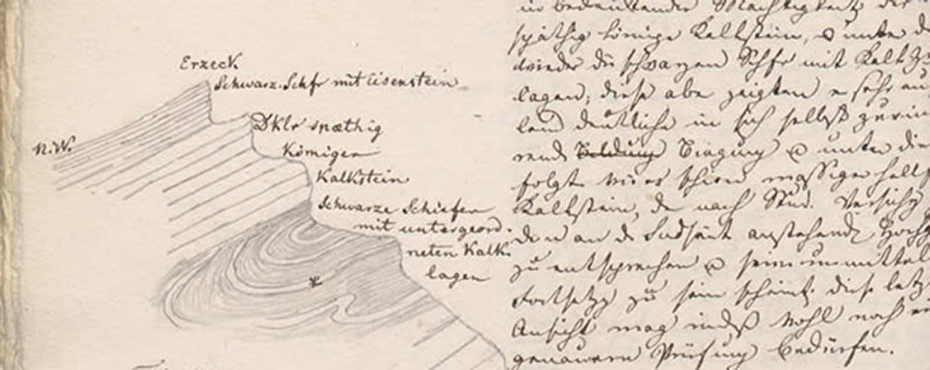 Erzeck
Schwarz. Schfr mit Eisenstein
N.W.
Dklr spæthig
Körniger
Kalkstein
Schwarze Schiefer
mit untergeord-
neten Kalk-
lagen
in bedeutender Mächtigkeit der
späthig körnige Kalkstein, unter
wieder die schwarzen Schfr mit Kalk
lagen; diese aber zeigten
deutliche in sich selbst
rende Biegung u unter
folgt massiger
Kalkstein, der nach Stud.
den an d. Südseite anstehende
zu entsprechen u seine unmittel
Fortsetzg zu sein scheint; diese letz
Ansicht mag indeß wohl noch
genauern Prüfung bedürfen.